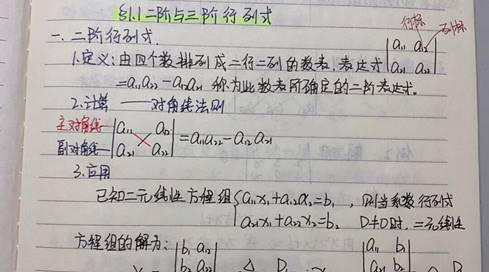 §1.1 二阶与三阶行列式
一、二阶行列式
行标
列标
1.定义:由四个数排列成二行二列的数表,表达式 |a₁₁ a₁₂|
|a₂₁ a₂₂|
=a₁₁a₂₂-a₁₂a₂₁ 称为此数表所确定的二阶表达式.
2.计算 —— 对角线法则
主对角线 |a₁₁ a₁₂|
副对角线 |a₂₁ a₂₂| =a₁₁a₂₂-a₁₂a₂₁
3.应用
已知二元线性方程组 {a₁₁x₁+a₁₂x₂=b₁ , 则当系数行列式
a₂₁x₁+a₂₂x₂=b₂ D≠0时,二元线性
方程组的解为: |b₁ a₁₂| |a₁₁ b₁|
|b₂ a₂₂|